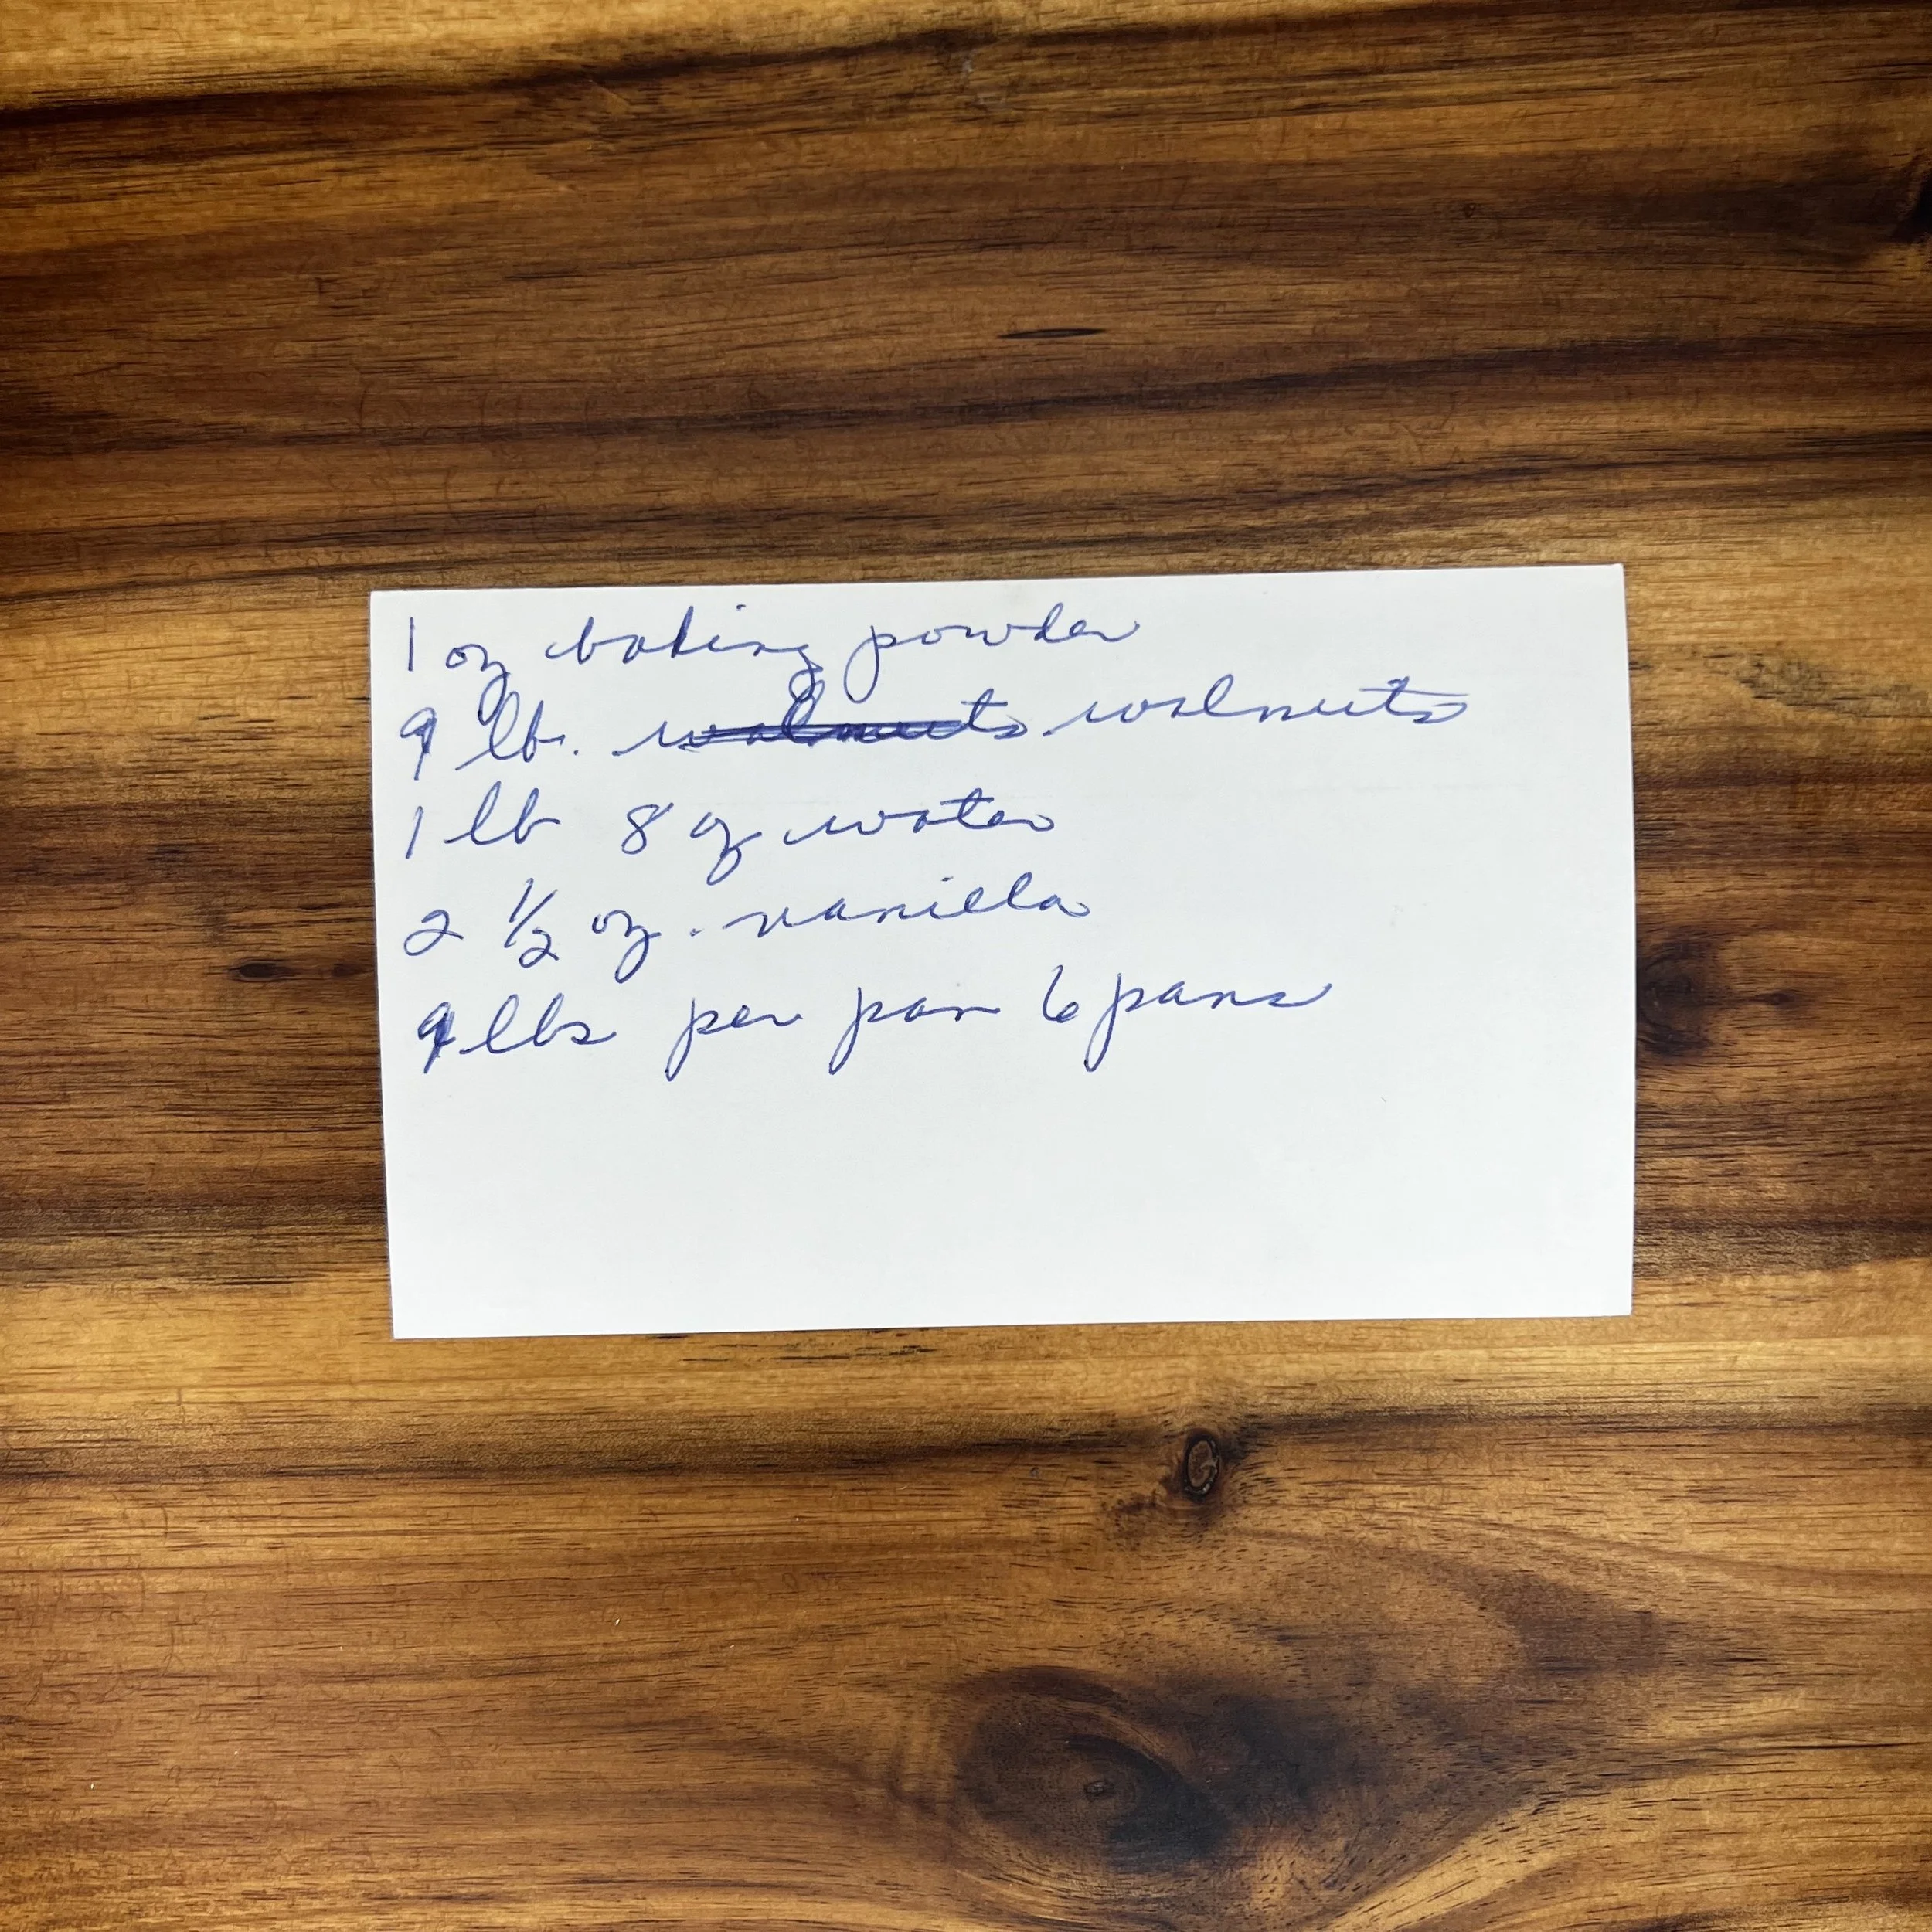 1 oz baking powder
9 lb. walnuts walnuts
1 lb 8 oz water
2 1/2 oz. vanilla
9 lbs per pan 6 pans